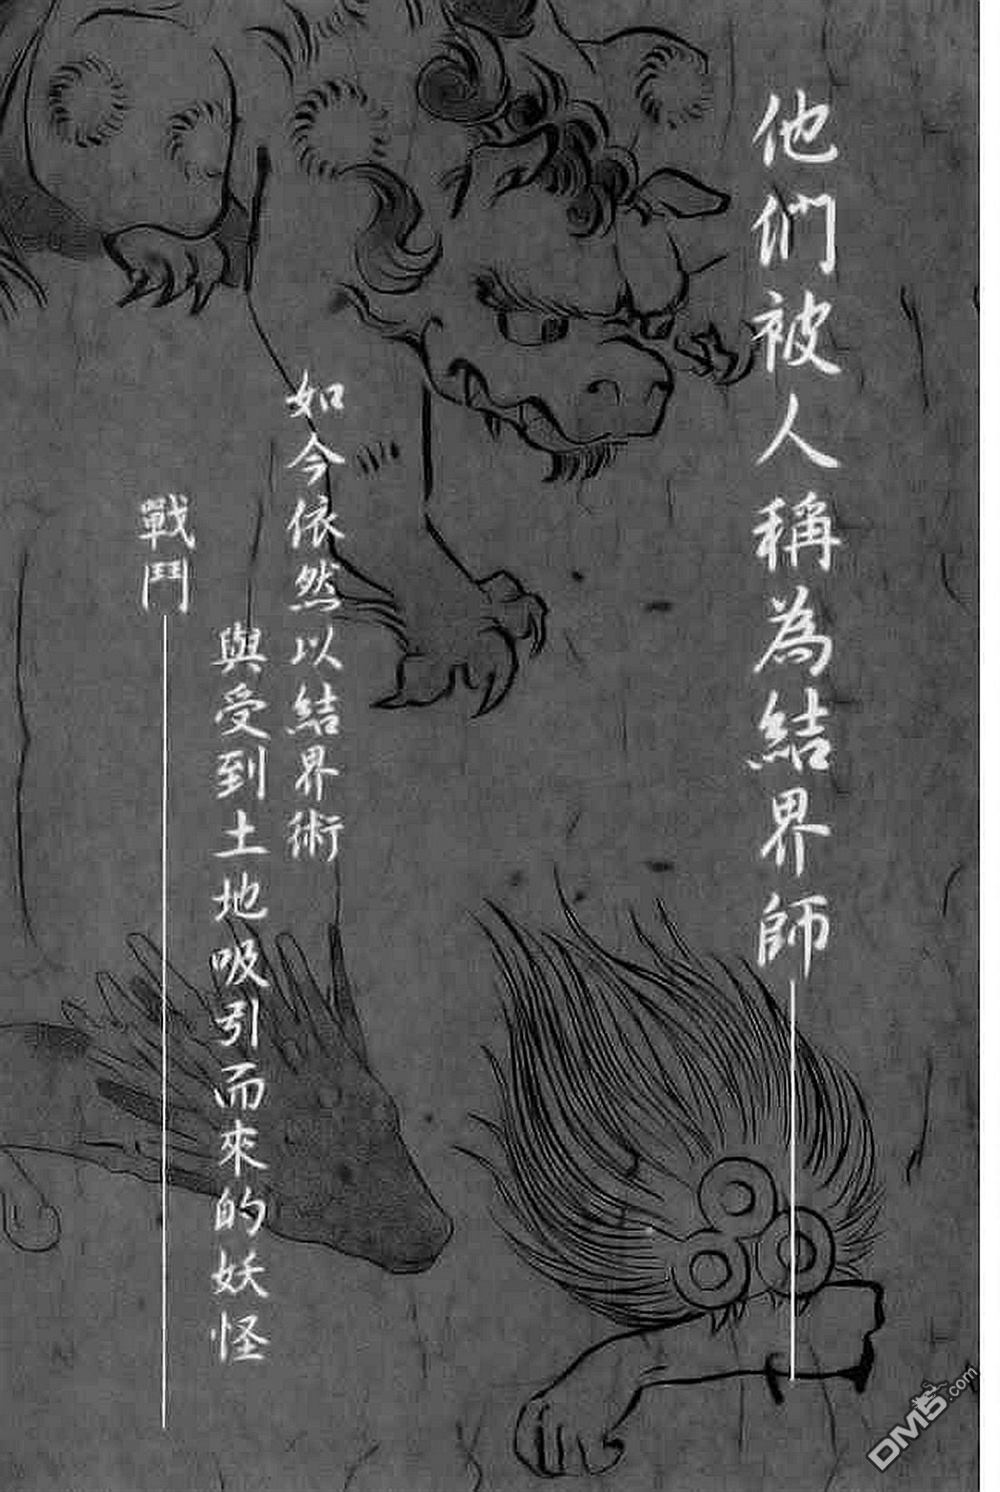 他們被人稱為結界師——
如今依然以結界術
與受到土地吸引而來的妖怪
戰鬥——
DM5.com